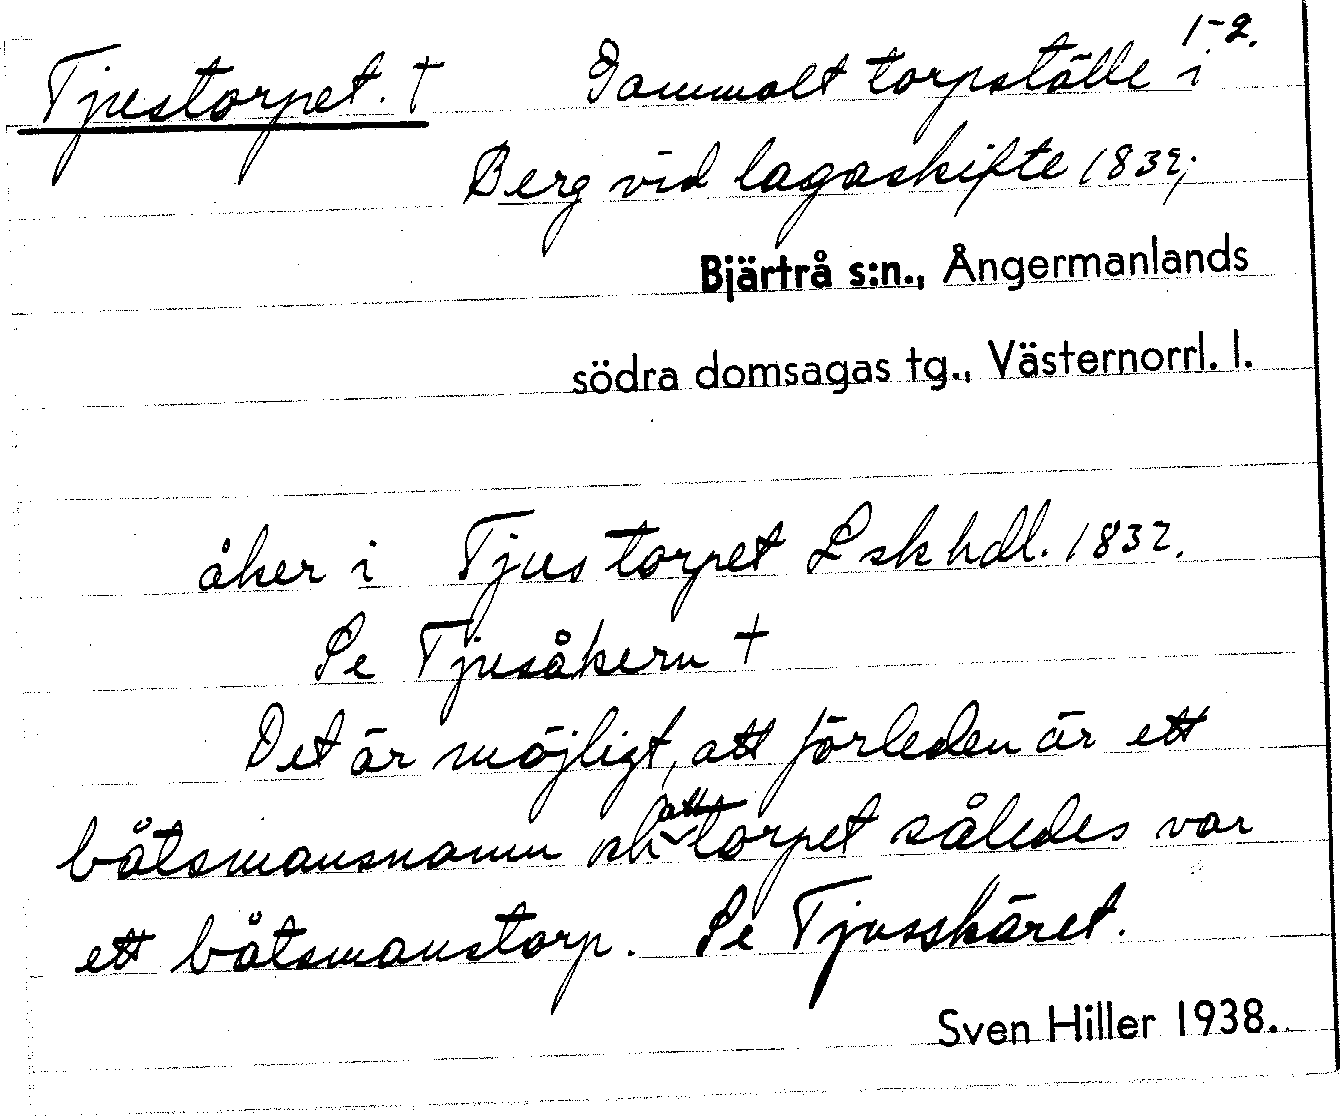 1-2.
Tjustorpet. † Gammalt torpställe i
Berg vid lagaskifte 1832;
Bjärtrå s:n., Ångermanlands
södra domsagas tg., Västernorrl. l.
åker i Tjustorpet Lskhdl. 1832.
Se Tjusåkern †
Det är möjligt, att förleden är ett
båtsmansnamn och att torpet således var
ett båtsmanstorp. Se Tjusskäret.
Sven Hiller 1938.